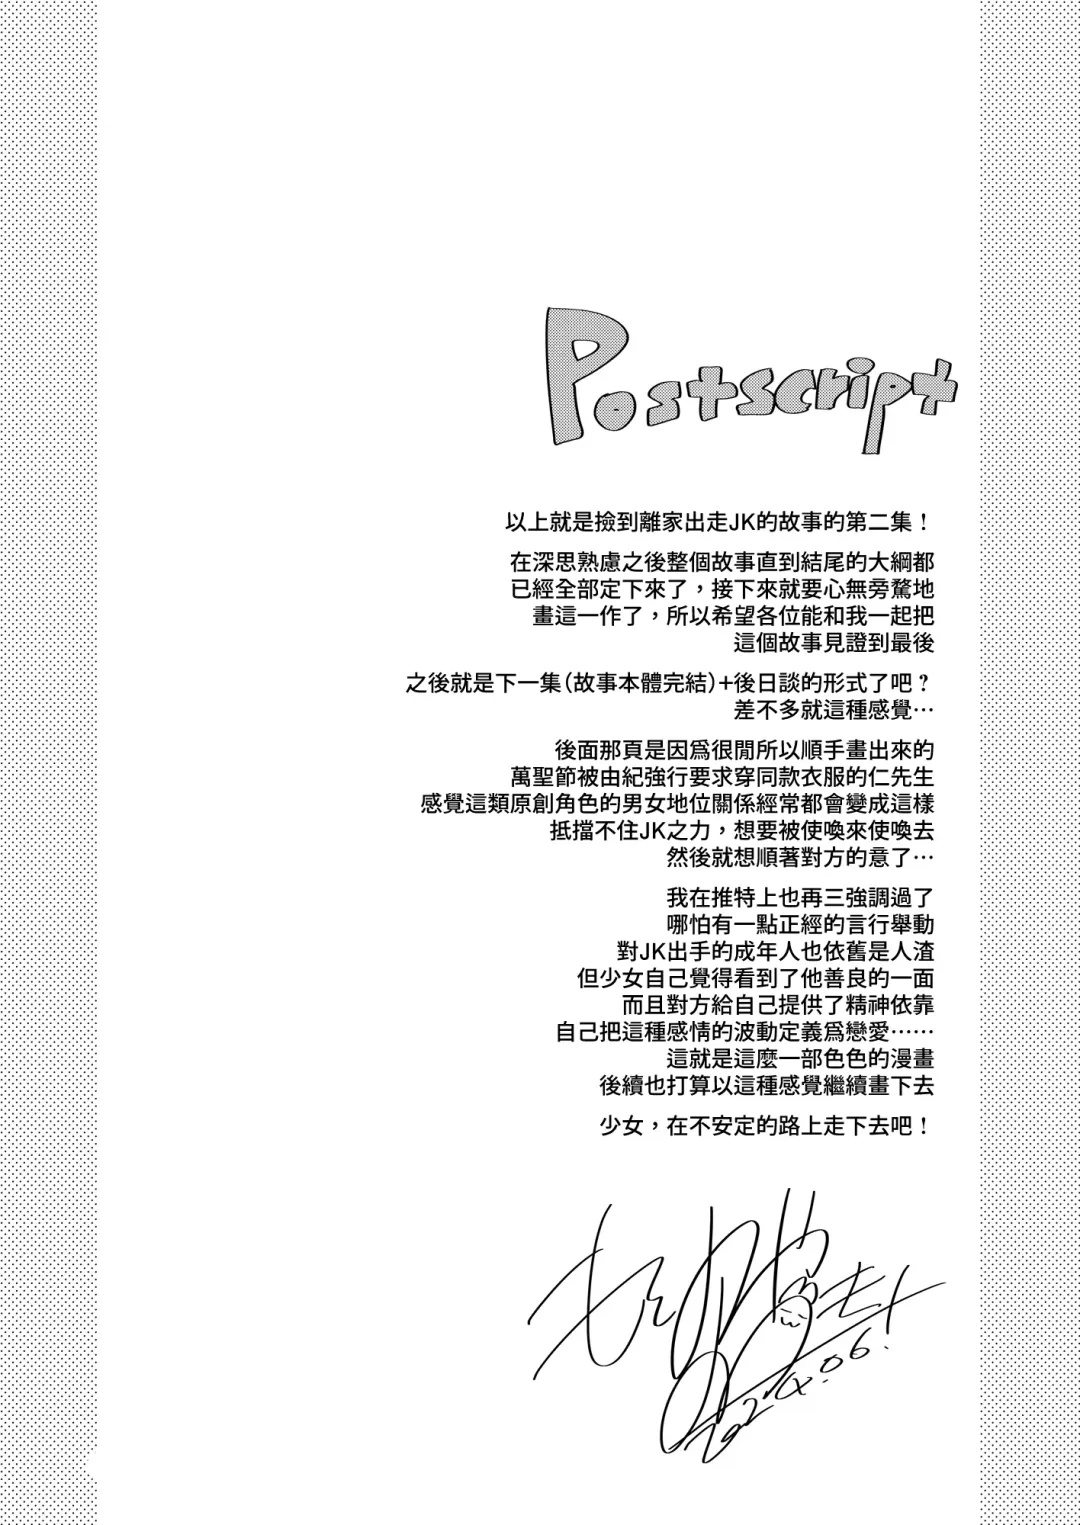 Postscript
以上就是撿到離家出走JK的故事的第二集！
在深思熟慮之後整個故事直到結尾的大綱都
已經全部定下來了，接下來就要心無旁騖地
畫這一作了，所以希望各位能和我一起把
這個故事見證到最後
之後就是下一集（故事本體完結）+後日談的形式了吧？
差不多就這種感覺…
後面那頁是因爲很閒所以順手畫出來的
萬聖節被由紀強行要求穿同款衣服的仁先生
感覺這類原創角色的男女地位關係經常都會變成這樣
抵擋不住JK之力，想要被使喚來使喚去
然後就想順著對方的意了…
我在推特上也再三強調過了
哪怕有一點正經的言行舉動
對JK出手的成年人也依舊是人渣
但少女自己覺得看到了他善良的一面
而且對方給自己提供了精神依靠
自己把這種感情的波動定義爲戀愛……
這就是這麼一部色色的漫畫
後續也打算以這種感覺繼續畫下去
少女，在不安定的路上走下去吧！
2024.06